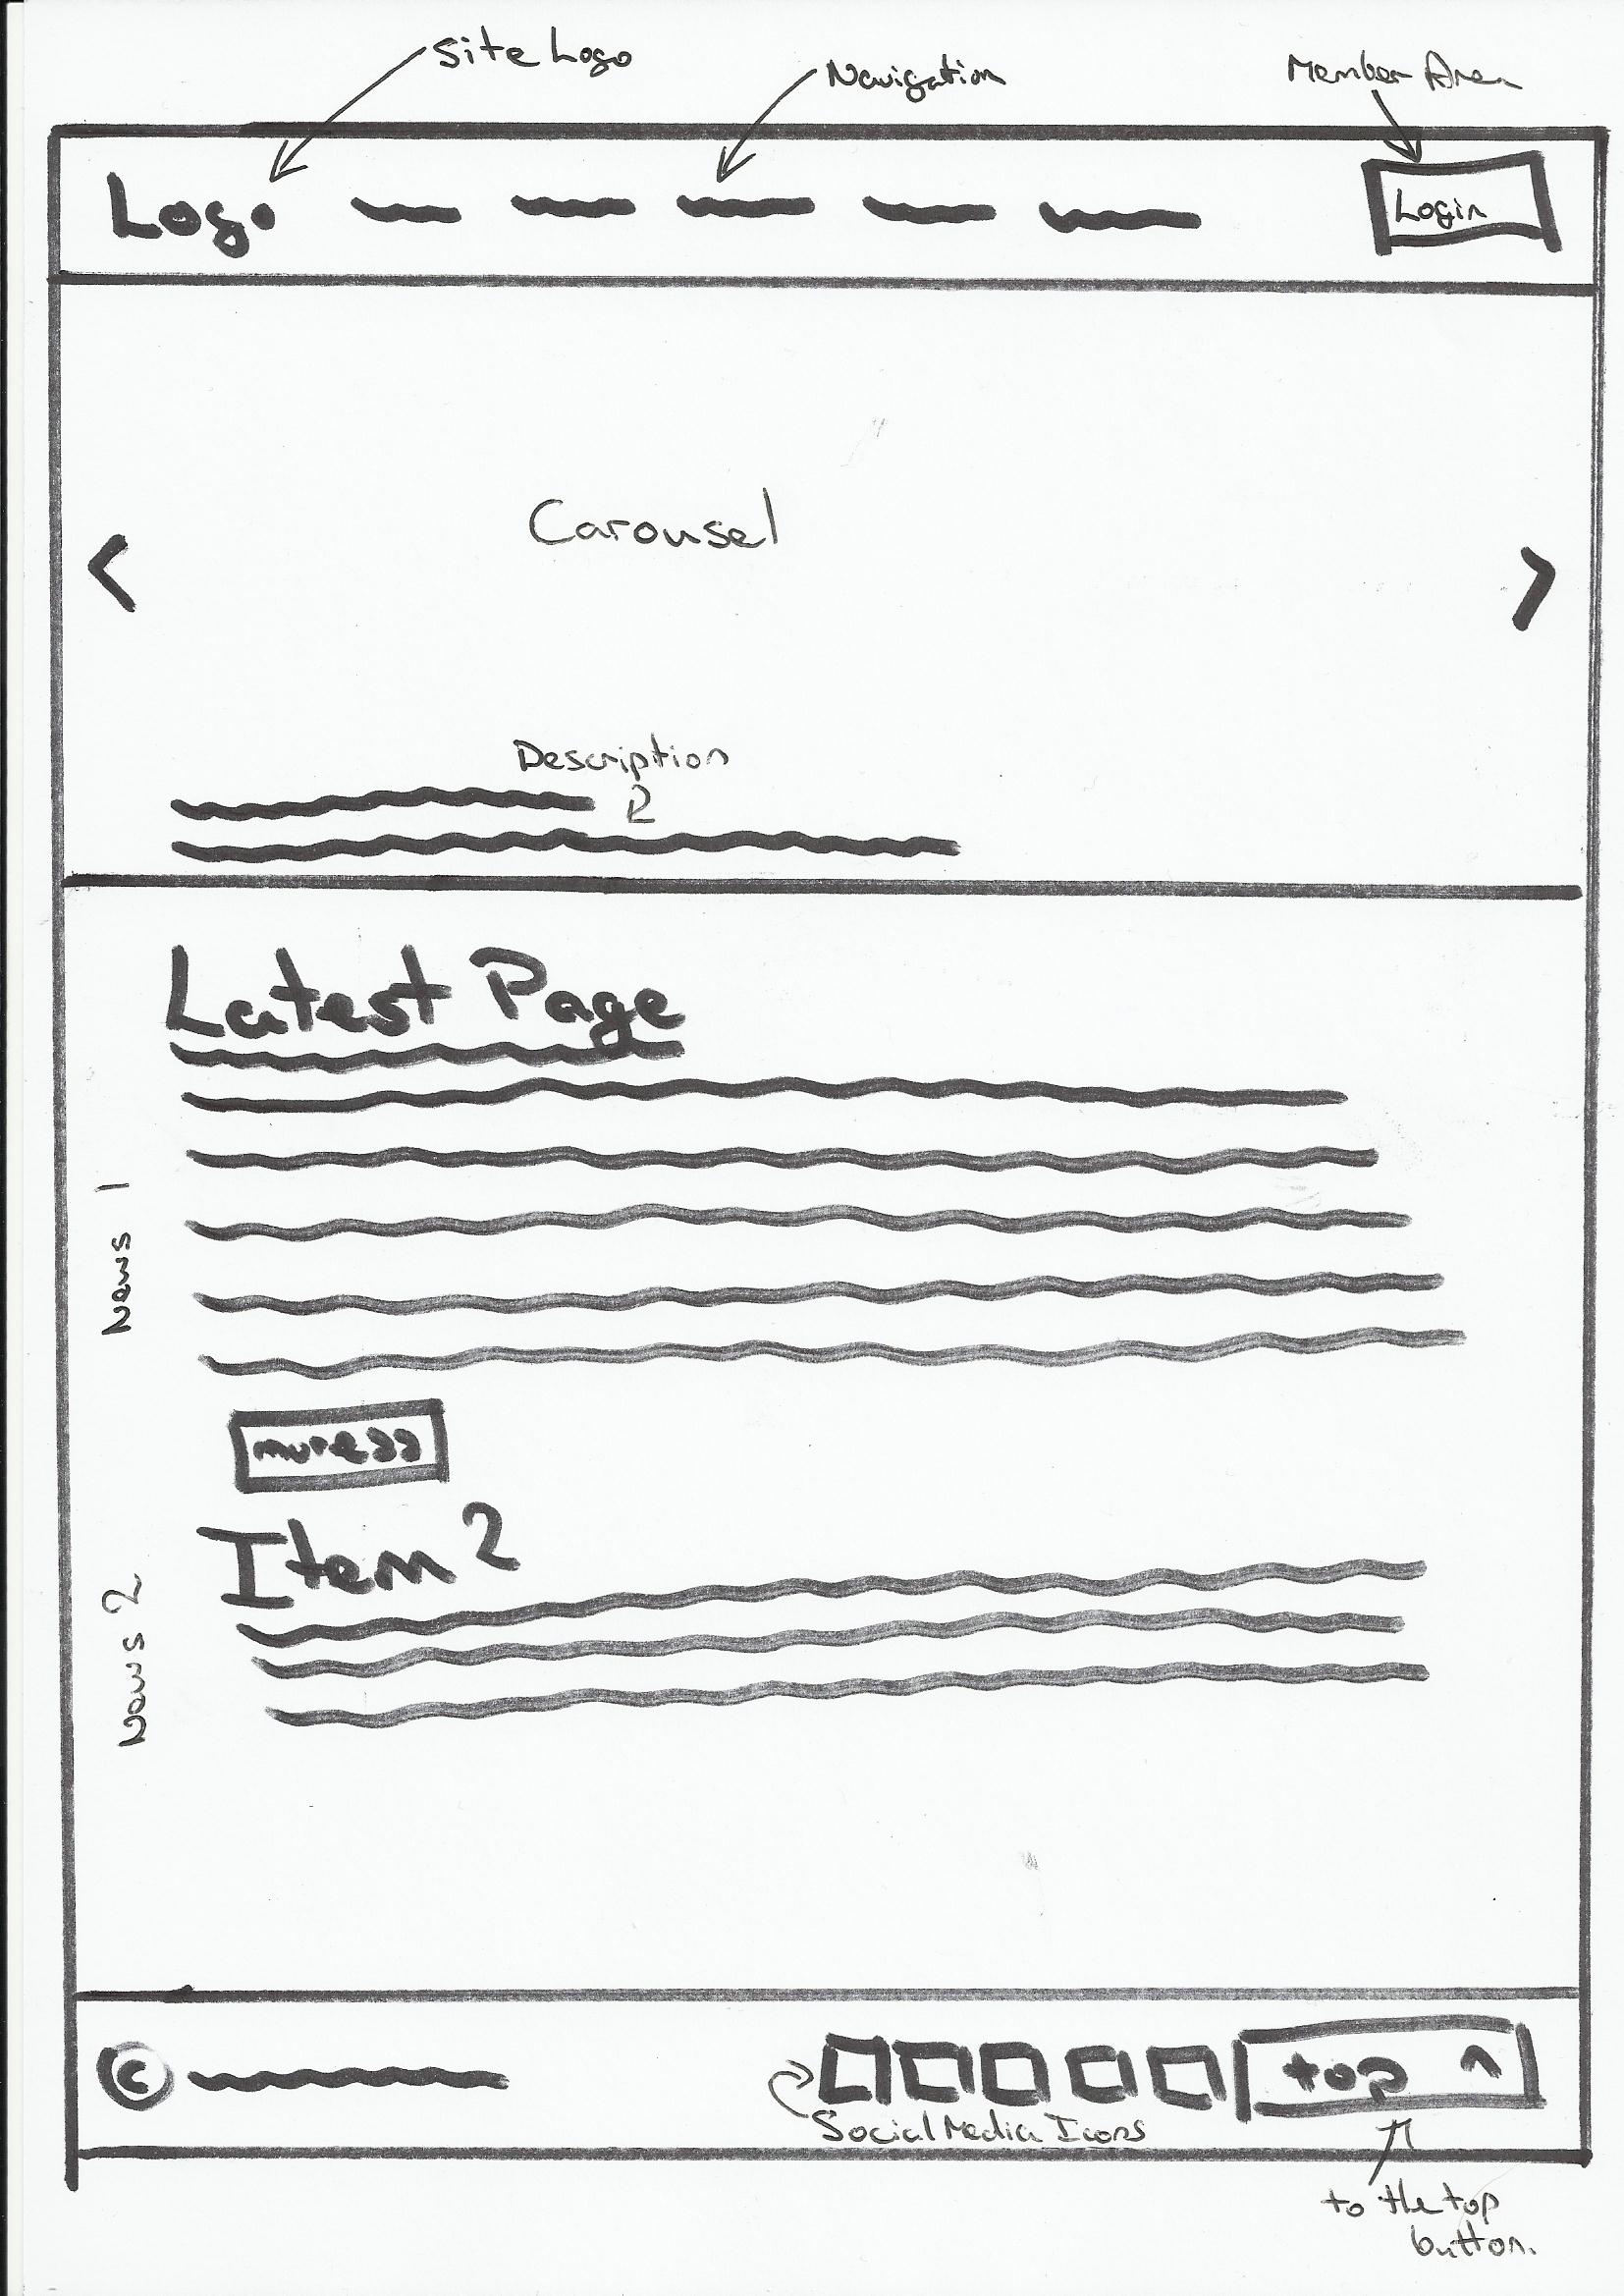 Site Logo
Navigation
Member Area
Logo
Login
Carousel
<
>
Description
Latest Page
News 1
Item 2
News 2
©
top ^
Social Media Icons
to the top
button.